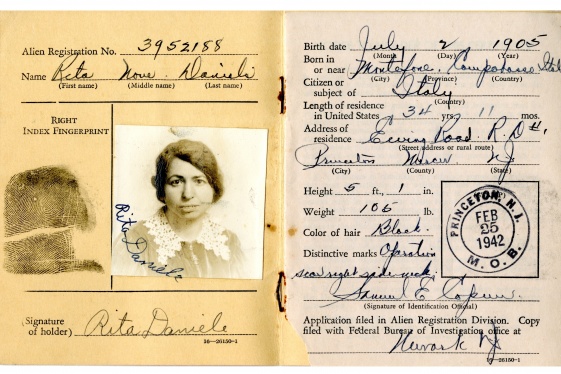 Alien Registration No. 3952188
Name Rita None Danieli
(First name) (Middle name) (Last name)
RIGHT
INDEX FINGERPRINT
Rita Daniele
(Signature
of holder) Rita Daniele
16—26150-1
Birth date July 2 1905
(Month) (Day) (Year)
Born in
or near Montefone, Campobasso Ital
(City) (Province) (Country)
Citizen or
subject of Italy
(Country)
Length of residence
in United States 34 yrs., 11 mos.
Address of
residence Ewing Road. R.D#1,
(Street address or rural route)
Princeton Mercer N.J.
(City) (County) (State)
Height 5 ft., 1 in.
Weight 105 lb.
Color of hair Black
Distinctive marks Operation
scar right side neck.
Samuel E.
(Signature of Identification Official)
PRINCETON, N.J.
FEB
25
1942
M.O.B.
Application filed in Alien Registration Division. Copy
filed with Federal Bureau of Investigation office at
Newark NJ
16—26150-1